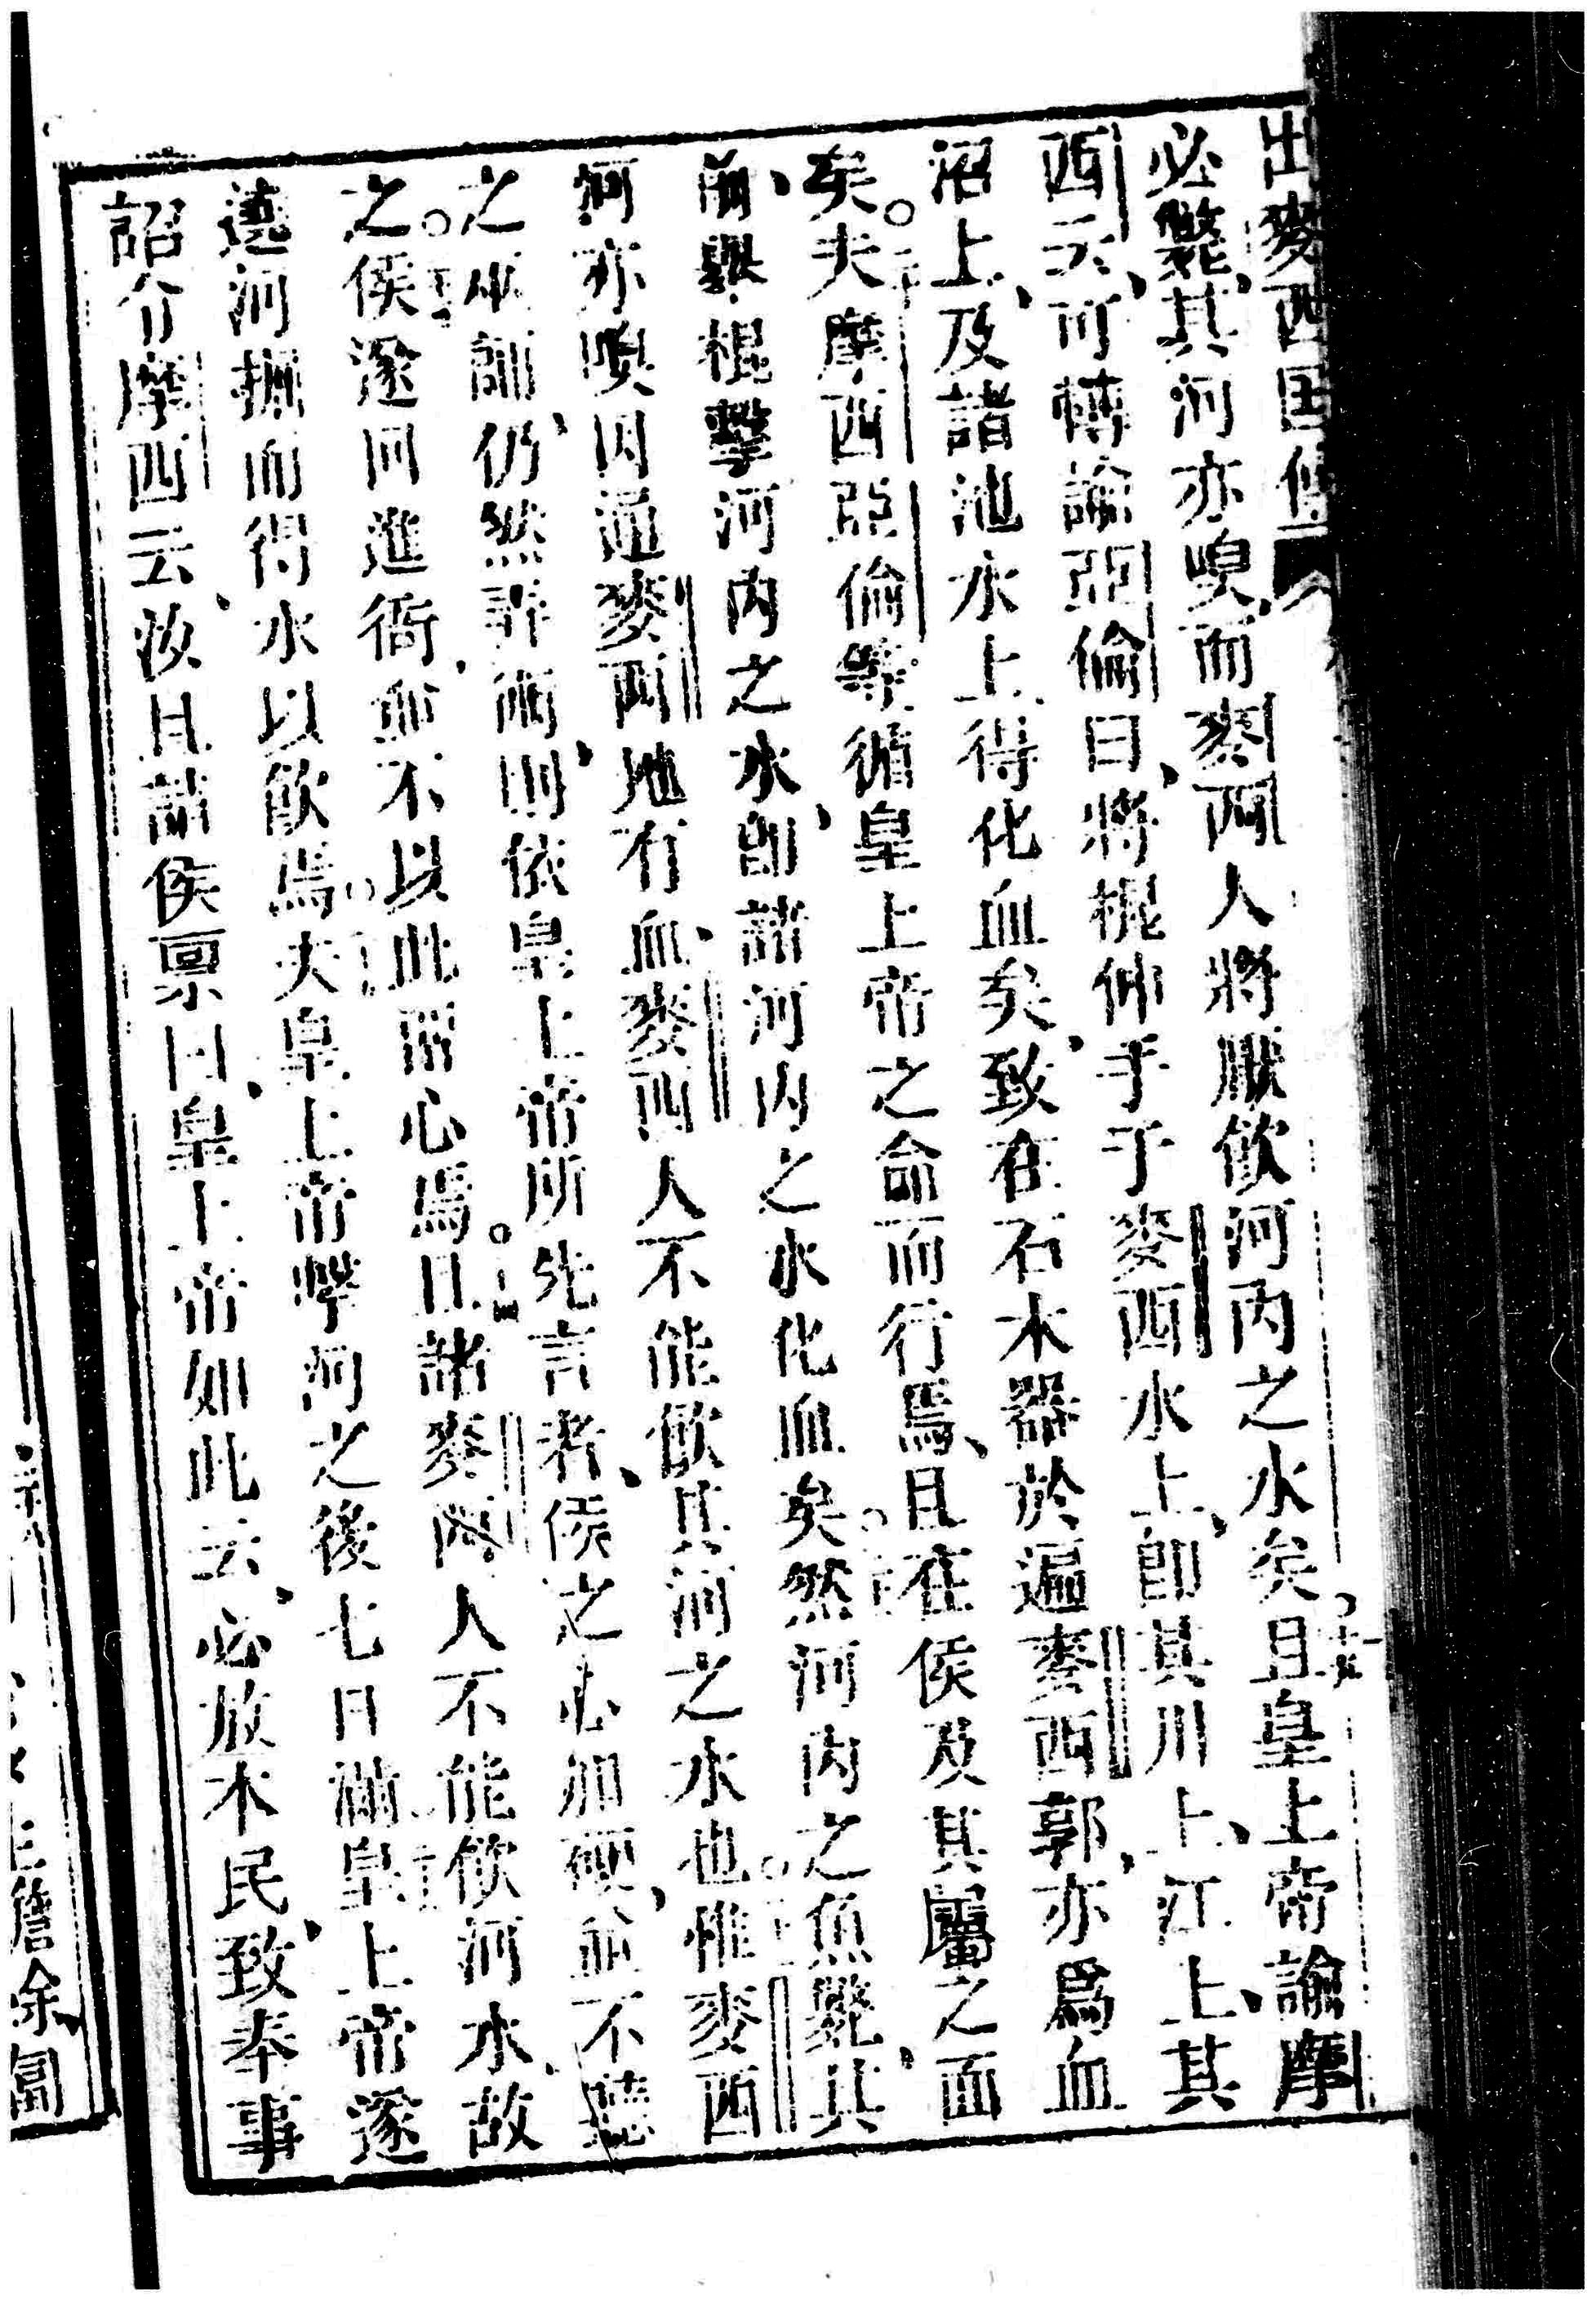 出麥西囯傳
必斃、其河亦嗅、而麥西人將厭飲河內之水矣且皇上帝諭摩
西云、可轉諭亞倫曰、將棍伸手于麥西水上、卽其川上、江上、其
沼上、及諸池水上、得化血矣、致在石木器於遍麥西郭、亦爲血
矣。夫摩西亞倫等循皇上帝之命而行焉、且在侯及其屬之面
前、舉棍擊河內之水、卽諸河內之水化血矣。然河內之魚斃、其
河亦嗅、因通麥西地有血、麥西人不能飲其河之水也。惟麥西
之巫師、仍然弄術、則依皇上帝所先言者、侯之心加硬、並不聽
之。侯遂囘進衙、並不以此留心焉。且諸麥西人不能飲河水、故
遶河掘而得水以飲焉。夫皇上帝擊河之後七日滿、皇上帝遂
詔介摩西云、汝且請侯禀曰、皇上帝如此云、必放本民、致奉事